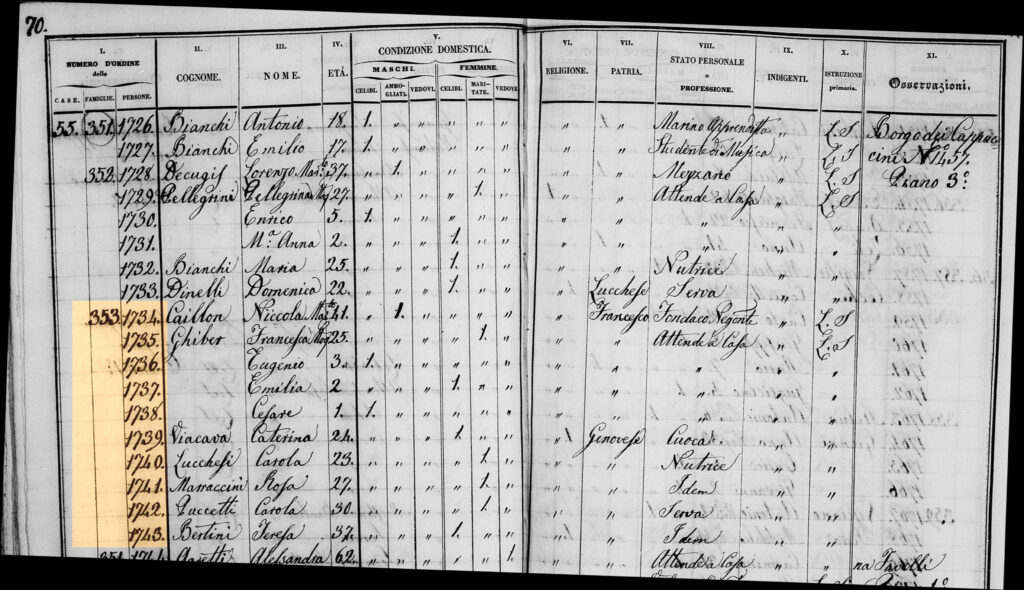 70.
I. II. III. IV. V. VI. VII. VIII. IX. X. XI.
NUMERO D'ORDINE delle COGNOME. NOME. ETÀ. CONDIZIONE DOMESTICA. RELIGIONE. PATRIA. STATO PERSONALE o PROFESSIONE. INDIGENTI. ISTRUZIONE primaria. Osservazioni.
MASCHI. FEMMINE.
CASE. FAMIGLIE. PERSONE. CELIBI. AMMOGLIATI. VEDOVI. CELIBI. MARITATE. VEDOVE
55. 351. 1726. Bianchi Antonio. 18. 1. " " " " " " " Marino Apprendista " L. S Borgo dei Cappuc=
1727. Bianchi Emilio 17. 1. " " " " " " " Studente di Musica " L. S cini N° 1457.
352. 1728. Decugis Lorenzo Mar.to 37. " 1. " " " " " " Mezzano " L. S Piano 3°.
1729. Pellegrini Pellegrina Mog 27. " " " " 1. " " " Attende a Casa " L. S
1730. Enrico 5. 1. " " " " " " " " " "
1731. M.a Anna 2. " " " 1. " " " " " " "
1732. Bianchi Maria 25. " " " 1. " " " " Nutrice " "
1733. Dinelli Domenica 22. " " " 1. " " " Lucchese Serva " "
353. 1734. Caillon Niccola Mar.to 41. " 1. " " " " " Francesco Fondaco Negonte " L. S
1735. Ghiber Francesca Mog 25. " " " " 1. " " " Attende a Casa " L. S
1736. Eugenio 3. 1. " " " " " " " " " "
1737. Emilia 2 " " " 1. " " " " " " "
1738. Cesare 1. 1. " " " " " " " " " "
1739. Viacava Caterina 24. " " " 1. " " " Genovese Cuoca " "
1740. Lucchesi Carola 23. " " " " 1. " " " Nutrice " "
1741. Marraccini Rosa 27. " " " " 1. " " " Idem " "
1742. Puccetti Carola 30. " " " " 1. " " " Serva " "
1743. Bertini Teresa 37. " " " 1. " " " " Idem " "
354 1744 Alessandra 62. " " " " " 1 " " Attende a Casa " na Tavelli